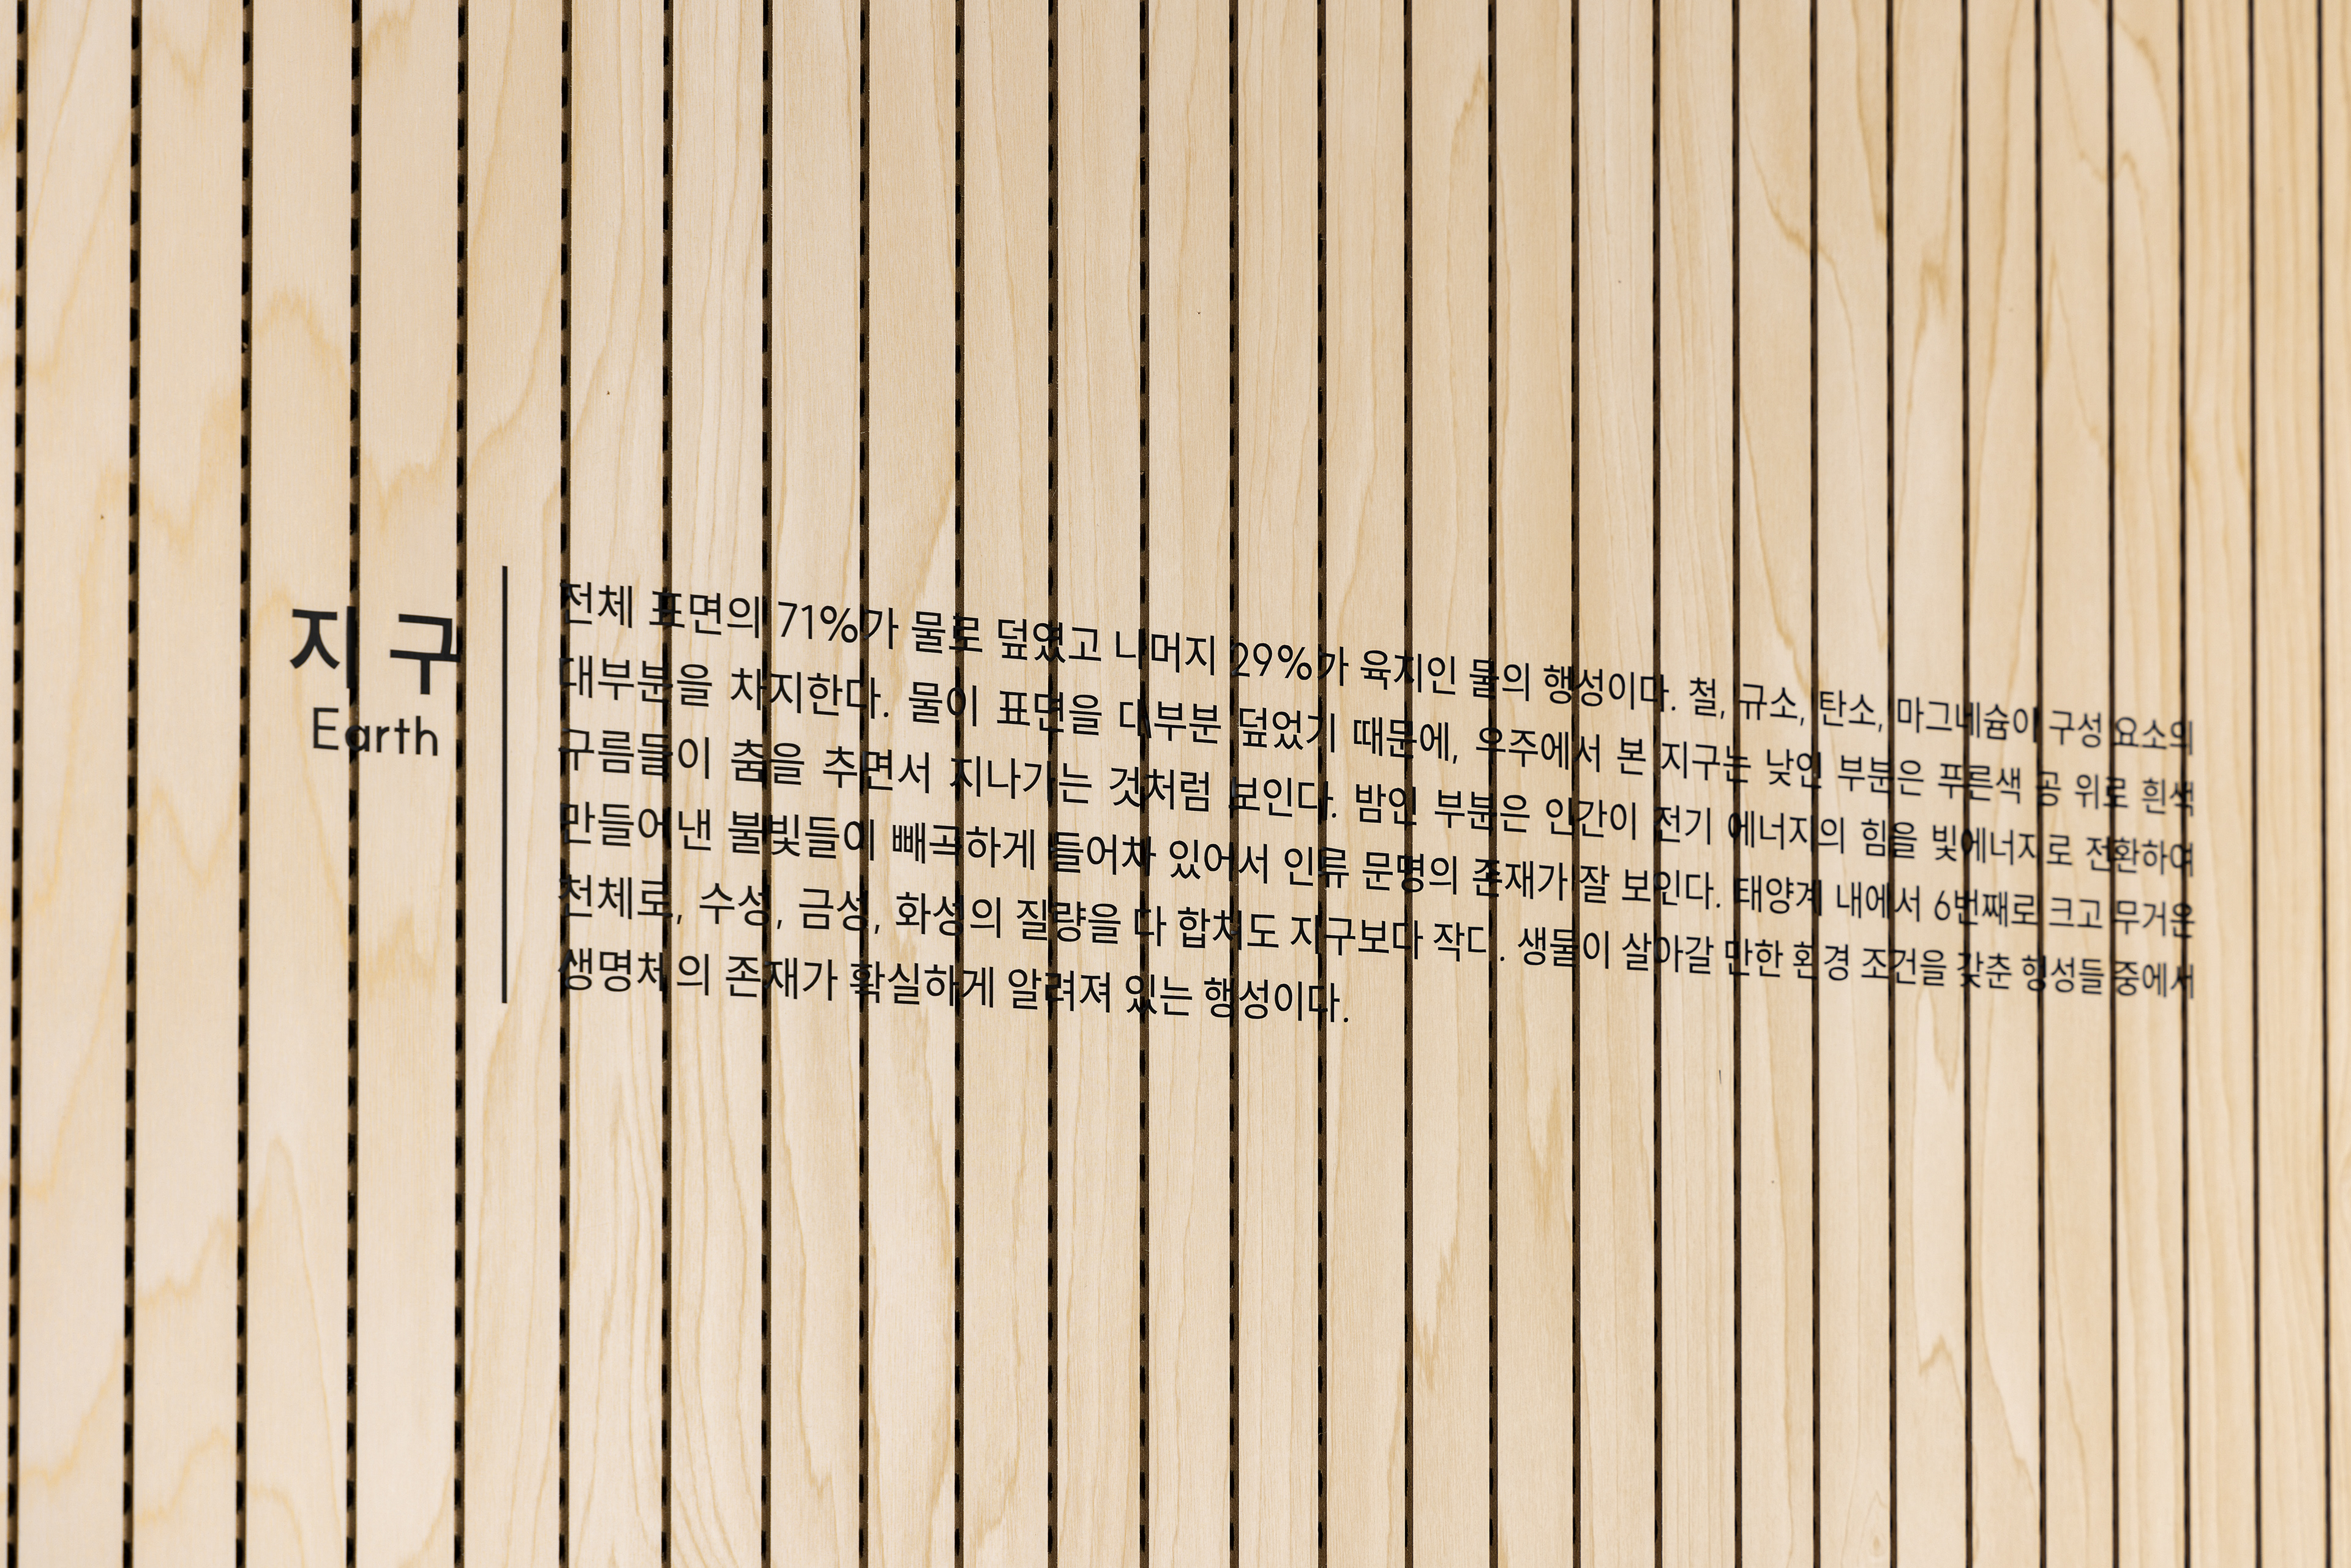 지구
Earth
전체 표면의 71%가 물로 덮였고 나머지 29%가 육지인 물의 행성이다. 철, 규소, 탄소, 마그네슘이 구성 요소의
대부분을 차지한다. 물이 표면을 대부분 덮었기 때문에, 우주에서 본 지구는 낮인 부분은 푸른색 공 위로 흰색
구름들이 춤을 추면서 지나가는 것처럼 보인다. 밤인 부분은 인간이 전기 에너지의 힘을 빛에너지로 전환하여
만들어낸 불빛들이 빼곡하게 들어차 있어서 인류 문명의 존재가 잘 보인다. 태양계 내에서 6번째로 크고 무거운
천체로, 수성, 금성, 화성의 질량을 다 합쳐도 지구보다 작다. 생물이 살아갈 만한 환경 조건을 갖춘 행성들 중에서
생명체의 존재가 확실하게 알려져 있는 행성이다.